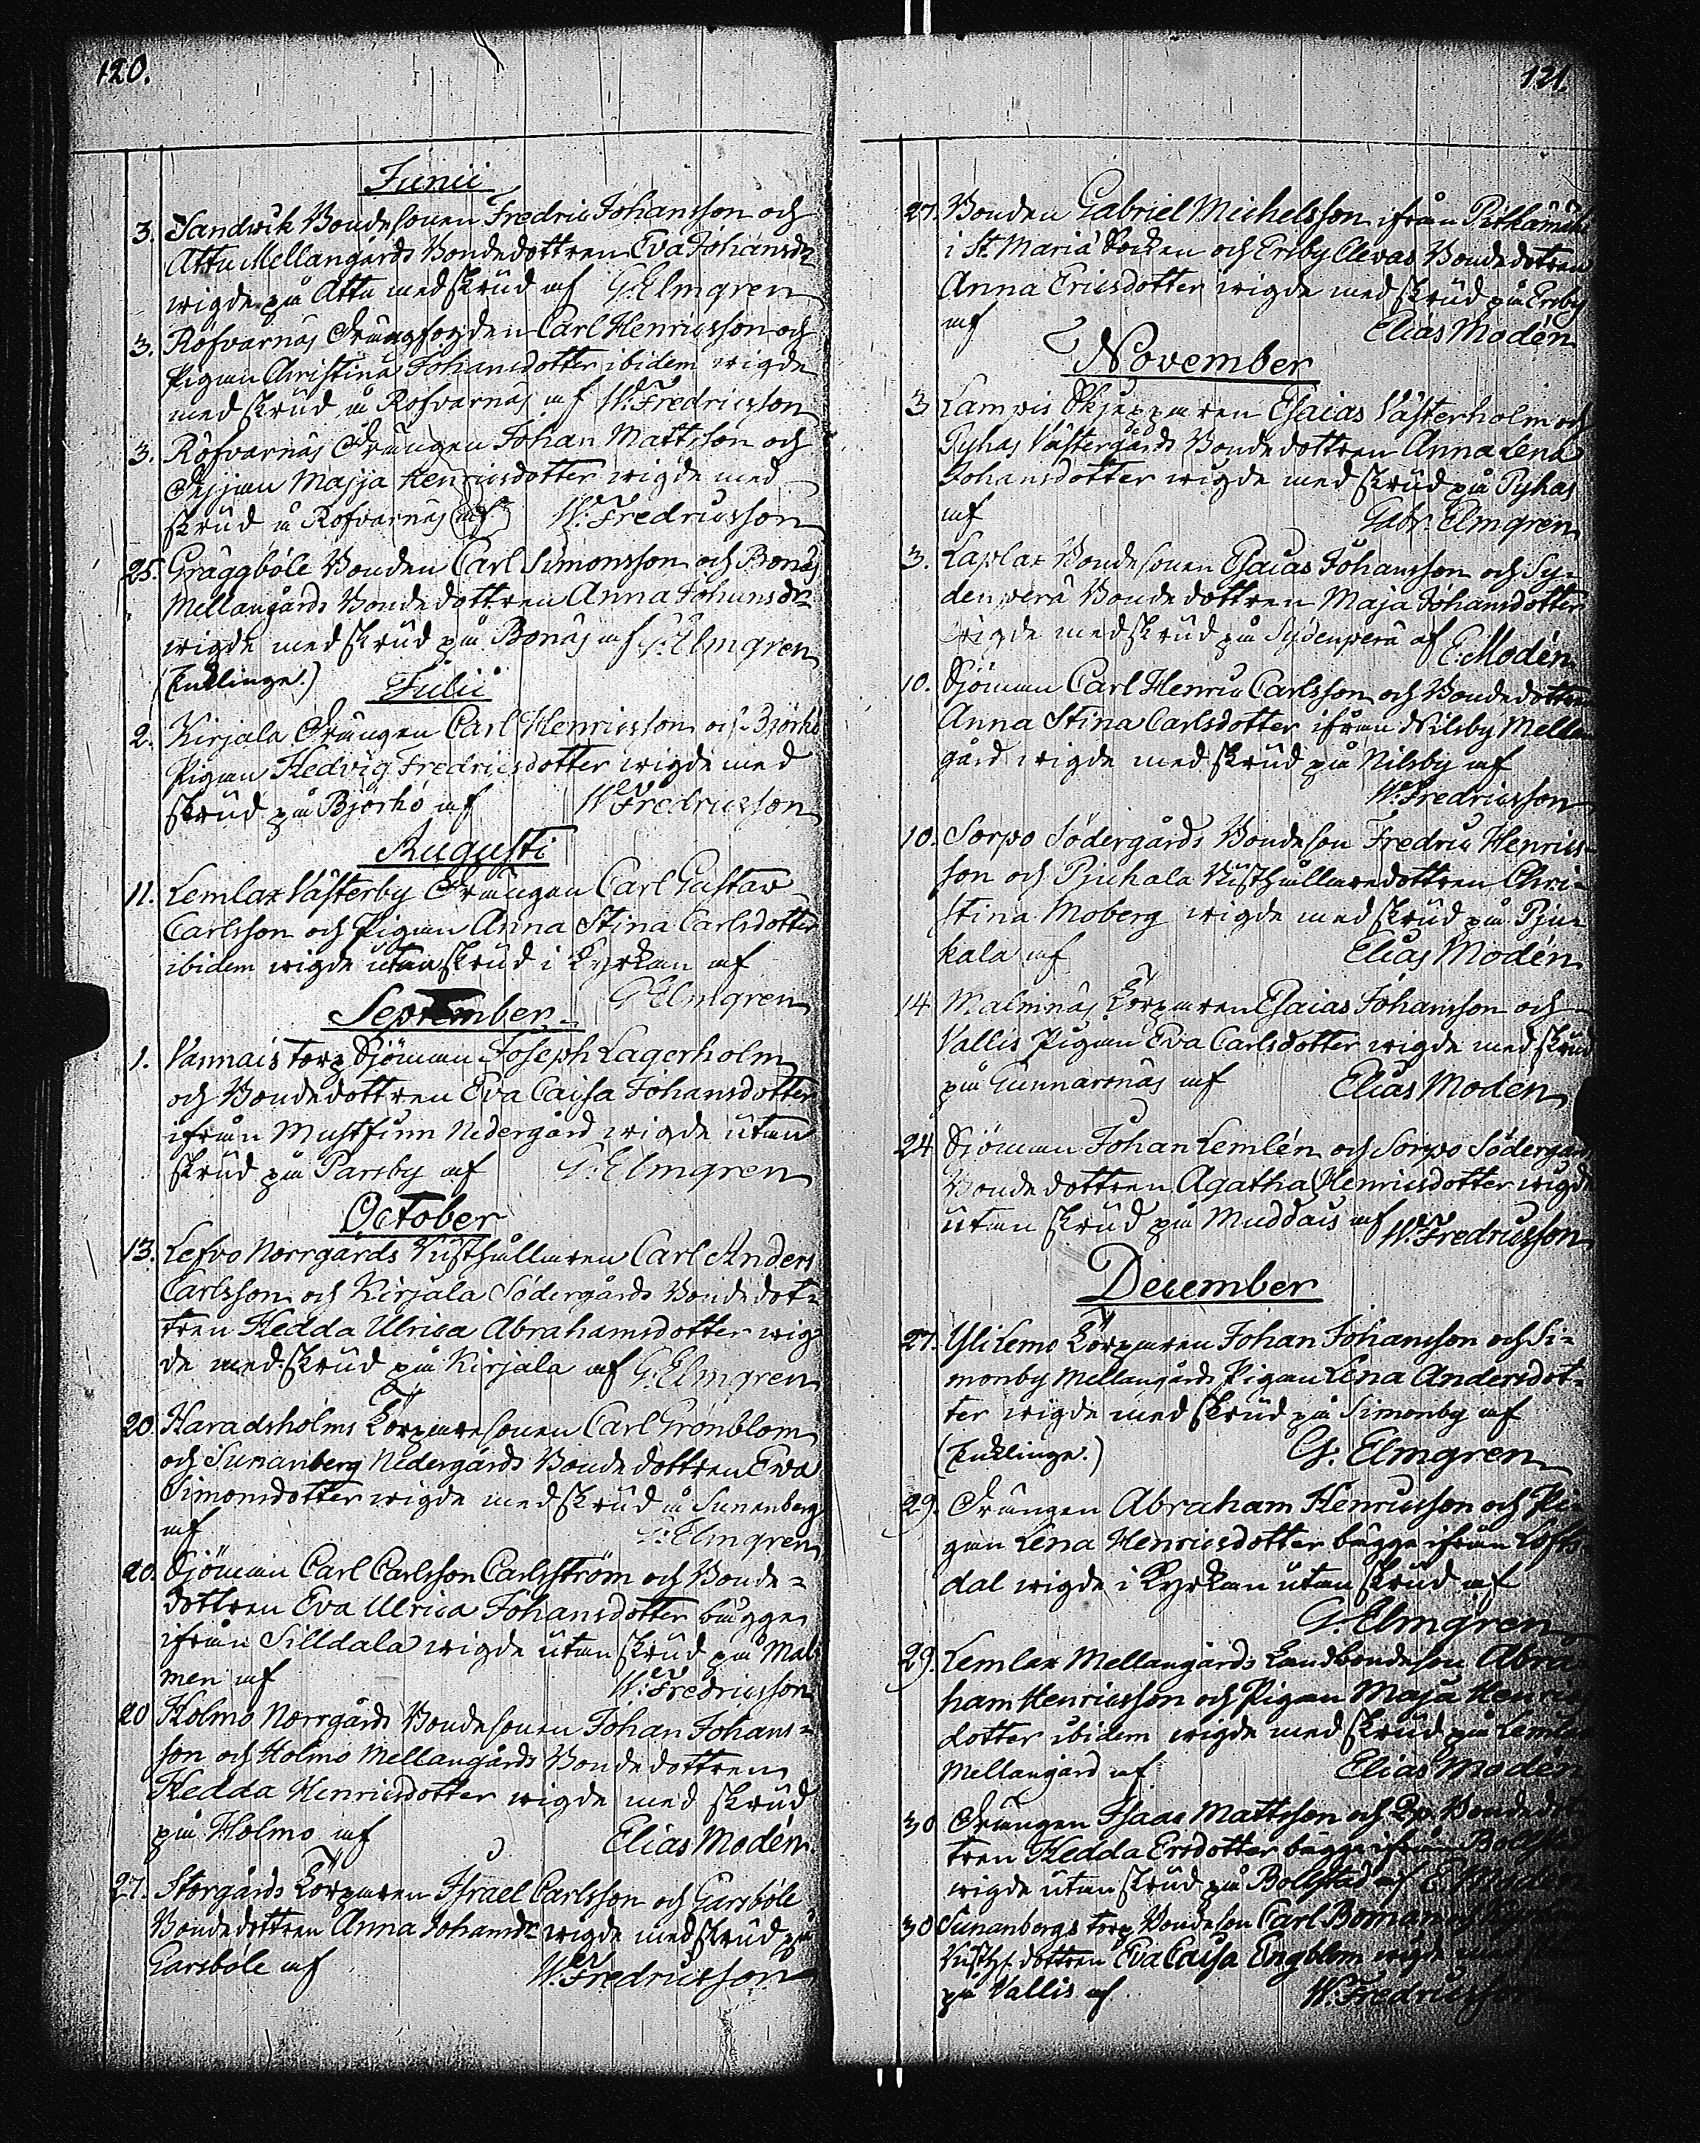 120.
Junii
3. Sandvik Bondesonen Fredric Johansson och
Attu Mellangårds Bondedottren Eva Johansdr
wigde på Attu med skrud af G. Elmgren
3. Röfvarnäs Drängfogden Carl Henricsson och
Pigan Christina Johansdotter ibidem wigde
med skrud å Röfvarnäs af W. Fredricsson
3. Röfvarnäs Drängen Johan Mattsson och
Pigan Majja Henricsdotter wigde med
skrud å Röfvarnäs af W. Fredricsson
25. Gräggböle Bonden Carl Simonsson och Bonäs
Mellangårds Bondedottren Anna Johansdr
wigde med skrud på Bonäs af G. Elmgren
(Enklinge.)
Julii
2. Kirjala Drängen Carl Henricsson och Björkö
Pigan Hedvig Fredricsdotter wigde med
skrud på Björkö af W. Fredricsson
Augusti
11. Lemlax Västerby Drängen Carl Gustav
Carlsson och Pigan Anna Stina Carlsdotter
ibidem wigde utan skrud i Kyrkan af
G Elmgren
September
1. Vannais torp Sjöman Joseph Lagerholm
och Bondedottren Eva Caisa Johansdotter
ifrån Mustfinn Nedergård wigde utan
skrud på Parsby af G. Elmgren
October
13. Lefvo Norrgårds Rusthållaren Carl Anders
Carlsson och Kirjala Södergårds Bondedot-
tren Hedda Ulrica Abrahamsdotter wig-
de med skrud på Kirjala af G. Elmgren
20. Haradsholms Torparesonen Carl Grönblom
och Sunanberg Nedergårds Bondedottren Eva
Simonsdotter wigde med skrud å Sunanberg
af G. Elmgren
20. Sjöman Carl Carlsson Carlström och Bonde-
dottren Eva Ulrica Johansdotter bägge
ifrån Silldala wigde utan skrud på Mal
men af W. Fredricsson
20 Holmo Norrgårds Bondesonen Johan Johans-
son och Holmo Mellangårds Bondedottren
Hedda Henricsdotter wigde med skrud
på Holmo af Elias Modén.
27. Storgårds Torparen Israel Carlsson och Garsböle
Bondedottren Anna Johansdr wigde med skrud på
Garsböle af W. Fredricsson
121.
27. Bonden Gabriel Michelsson ifrån
i St. Mariæ Socken och Ersby Clevas Bondedottren
Anna Ericsdotter wigde med skrud på Ersby
af Elias Modén
November
3 Lampis Skjepparen Esaias Västerholm och
Pyhas Västergårds Bondedottren Anna Lena
Johansdotter wigde med skrud på Pyhas
af Gabr. Elmgren
3. Laplax Bondesonen Esaias Johansson och Sy-
denperä Bondedottren Maja Johansdotter
wigde med skrud på Sydenperä af E. Modén
10. Sjöman Carl Henric Carlsson och Bondedottren
Anna Stina Carlsdotter ifrån Nilsby Mellan
gård wigde med skrud på Nilsby af
W. Fredricsson
10. Sorpo Södergårds Bondeson Fredric Henrics-
son och Pjukala Rusthållaredottren Chri-
stina Moberg wigde med skrud på Pju-
kala af Elias Modén
14 Malmnäs Torparen Esaias Johansson och
Vallis Pigan Eva Carlsdotter wigde med skrud
på Gunnarsnäs af Elias Modén
24 Sjöman Johan Lemlén och Sorpo Södergårds
Bondedottren Agatha Henricsdotter wigde
utan skrud på Muddais af W. Fredricsson
December
27. Ylilemo Torparen Johan Johansson och Si-
monby Mellangårds Pigan Lena Andersdot-
ter wigde med skrud på Simonby af
(Enklinge.) G. Elmgren
29. Drängen Abraham Henricsson och Pi-
gan Lena Henricsdotter bägge ifrån Löfs
dal wigde i Kyrkan utan skrud af
G. Elmgren
29. Lemlax Mellangårds Landbondeson Abra-
ham Henricsson och Pigan Maja Henrics
dotter ibidem wigde med skrud på Lemlax
Mellangård af Elias Modén
30 Drängen Isaac Mattsson och Bondedot
tren Hedda Ersdotter bägge ifrån Bollstad
wigde utan skrud på Bollstad af E. Modén
30 Sunanbergs torp Bondeson Carl Boman och
Rusth. dottren Eva Caisa Engblom wigde med
på Vallis af W. Fredricsson